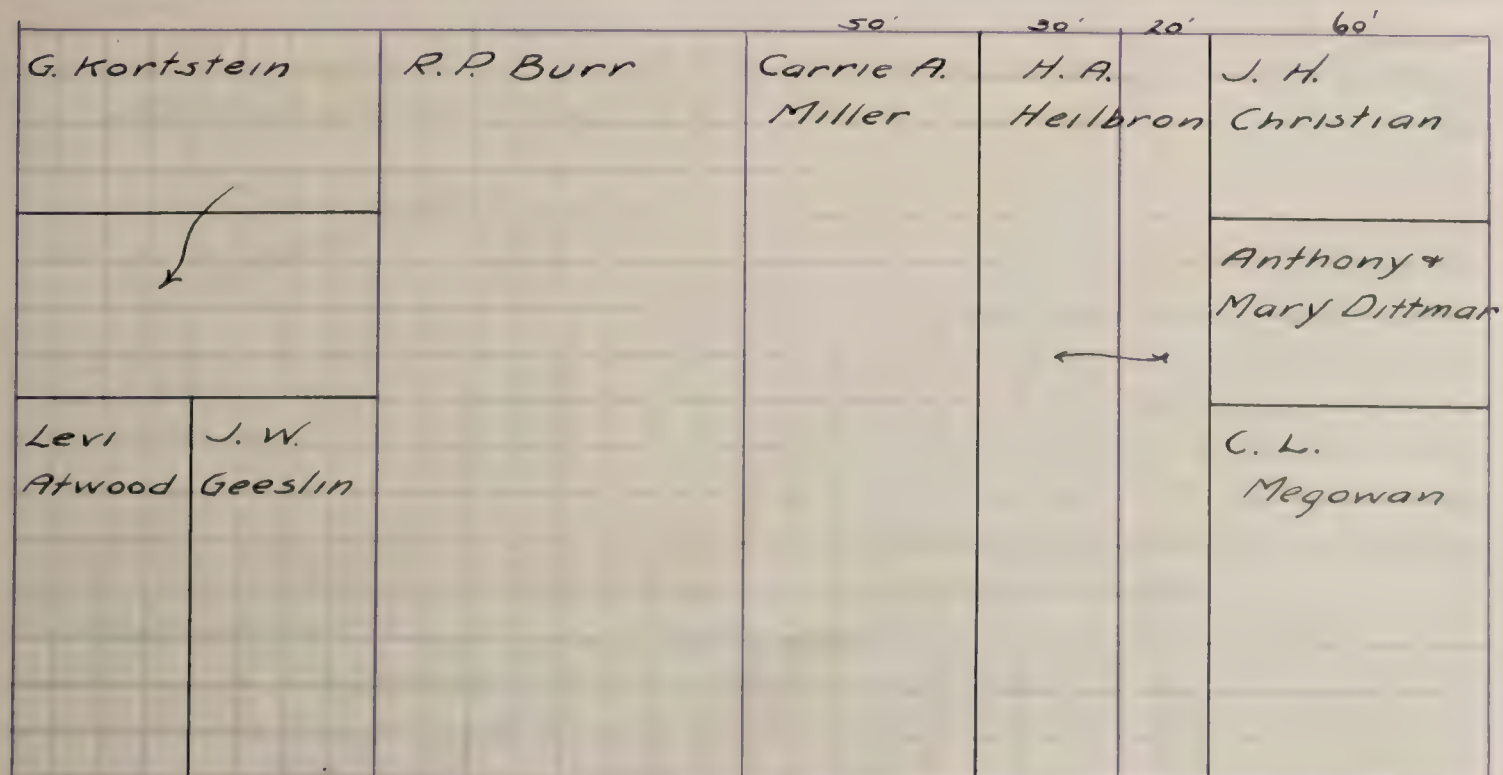 50' 30' 20' 60'
G. Kortstein
R. P. Burr
Carrie A.
Miller
H. A.
Heilbron
J. H.
Christian
Anthony &
Mary Dittmar
Levi
Atwood
J. W.
Geeslin
C. L.
Megowan